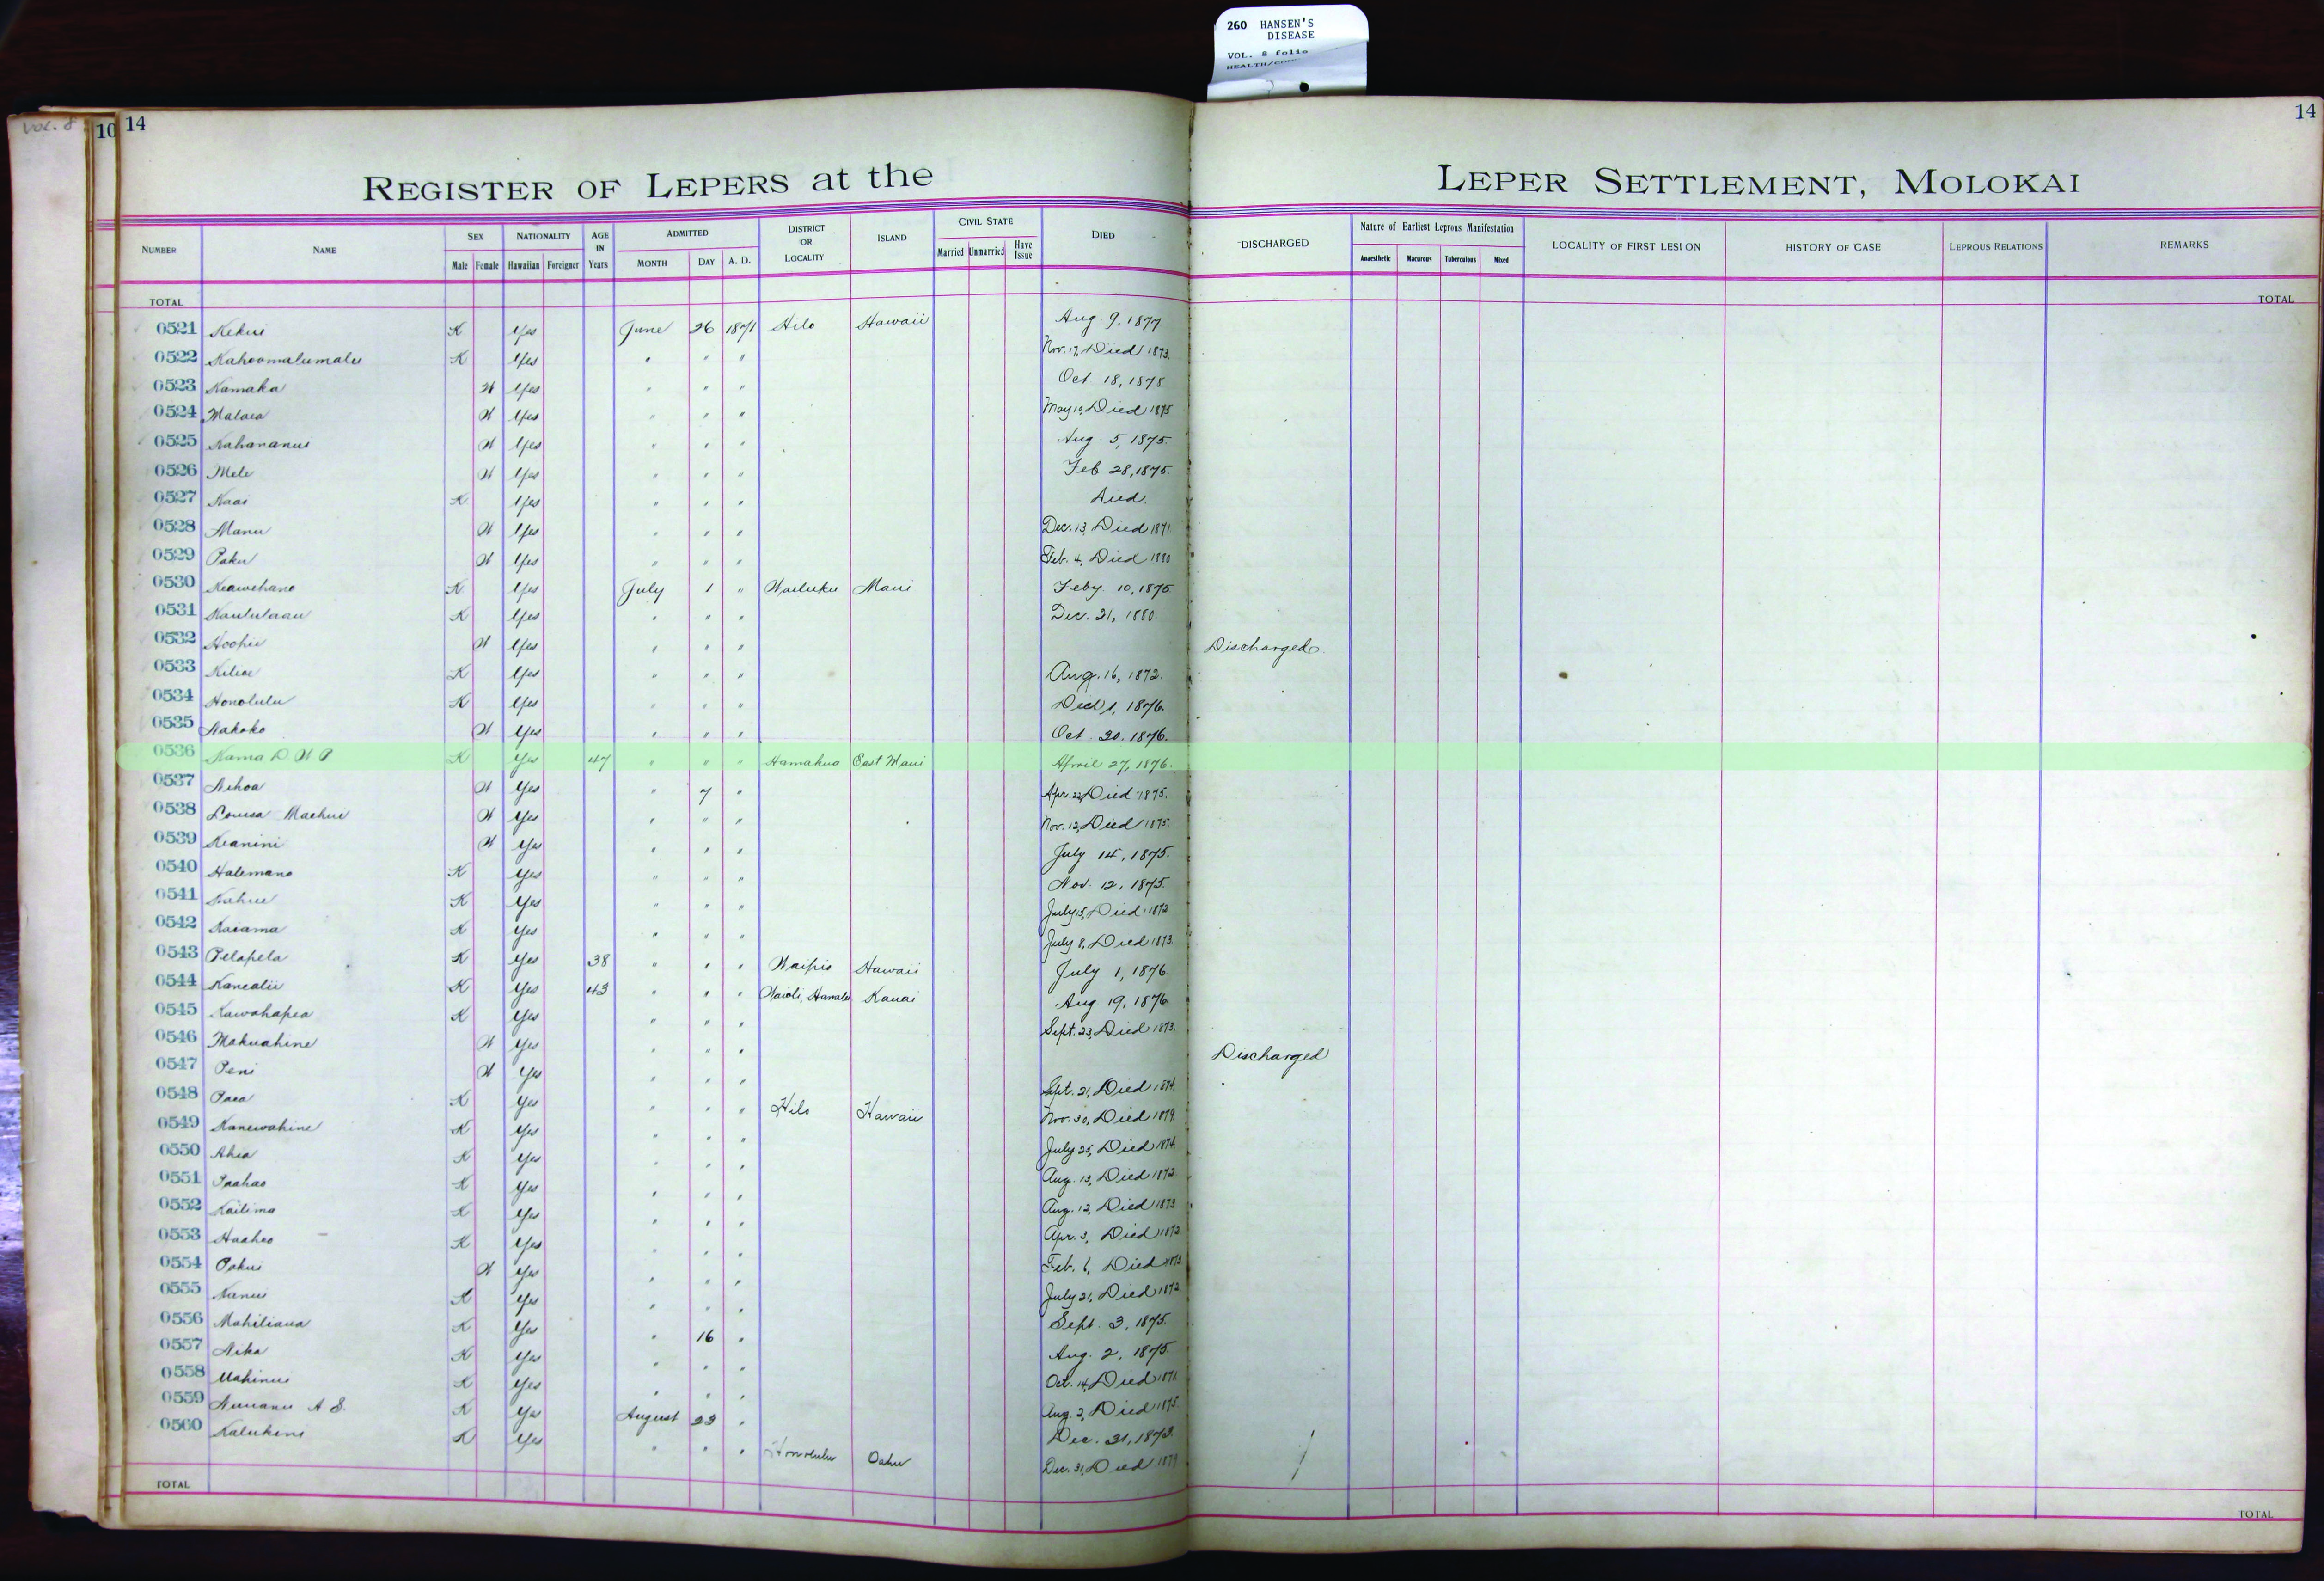 260 HANSEN'S
DISEASE
VOL. 8 folio
VOL. 8
10
14
14
REGISTER OF LEPERS at the LEPER SETTLEMENT, MOLOKAI
NUMBER NAME SEX NATIONALITY AGE IN Years ADMITTED DISTRICT OR LOCALITY ISLAND CIVIL STATE DIED DISCHARGED Nature of Earliest Leprous Manifestation LOCALITY OF FIRST LESION HISTORY OF CASE LEPROUS RELATIONS REMARKS
Male Female Hawaiian Foreigner MONTH DAY A. D. Married Unmarried Have Issue Anaesthetic Macurous Tuberculous Mixed
TOTAL TOTAL
0521 Kekui K Yes June 26 1871 Hilo Hawaii Aug 9, 1877
0522 Kahoomalumalu K Yes " " " Nov. 17, Died 1873.
0523 Kamaka W Yes " " " Oct 18, 1875
0524 Malaea W Yes " " " May 10, Died 1875
0525 Kahananui W Yes " " " Aug. 5, 1875.
0526 Mele W Yes " " " Feb 28, 1875.
0527 Kaai K Yes " " " Died.
0528 Manu W Yes " " " Dec. 13, Died 1871
0529 Paku W Yes " " " Feb. 4, Died 1880
0530 Keawehano K Yes July 1 " Wailuku Maui Feby 10, 1875
0531 Kaululaau K Yes " " " Dec. 21, 1880.
0532 Hoohii W Yes " " " Discharged.
0533 Kiliae K Yes " " " Aug. 16, 1872.
0534 Honolulu K Yes " " " 1, 1876.
0535 Nakoko W Yes " " " Oct. 30, 1876.
0536 Kama D W P K Yes 47 " " " Hamakua East Maui April 27, 1876.
0537 Nihoa W Yes " 7 " Apr. 22, Died 1875.
0538 Louisa Maehui W Yes " " " Nov. 12, Died 1875.
0539 Keanini W Yes " " " July 14, 1875.
0540 Halemano K Yes " " " Nov. 12, 1875.
0541 Kahue K Yes " " " July 15, Died 1872
0542 Kaiama K Yes " " " July 8, Died 1873.
0543 Pelapela K Yes 38 " " " Waipio Hawaii July 1, 1876
0544 Kanealii K Yes 43 " " " Waioli, Hanalei Kauai Aug 19, 1876
0545 Kawahapea K Yes " " " Sept. 23, Died 1873.
0546 Makuahine W Yes " " " Discharged
0547 Peni W Yes " " " Sept. 21, Died 1874.
0548 Paea K Yes " " " Hilo Hawaii Nov. 30, Died 1879.
0549 Kanewahine K Yes " " " July 25, Died 1874.
0550 Ahia K Yes " " " Aug. 13, Died 1872.
0551 Paahao K Yes " " " Aug. 12, Died 1873
0552 Kailima K Yes " " " Apr. 3, Died 1872
0553 Haaheo K Yes " " " Feb. 6, Died 1873
0554 Pakui W Yes " " " July 21, Died 1872
0555 Nanui K Yes " " " Sept. 3, 1875.
0556 Mahiliaua K Yes " 16 " Aug. 2, 1875.
0557 Nika K Yes " " " Oct. 14, Died 1871.
0558 Mahinui K Yes " " " Aug. 2, Died 1875.
0559 Nuuanu A S. K Yes August 23 " Dec. 31, 1873.
0560 Kalukini K Yes " " " Honolulu Oahu Dec. 31, Died 1879
TOTAL TOTAL